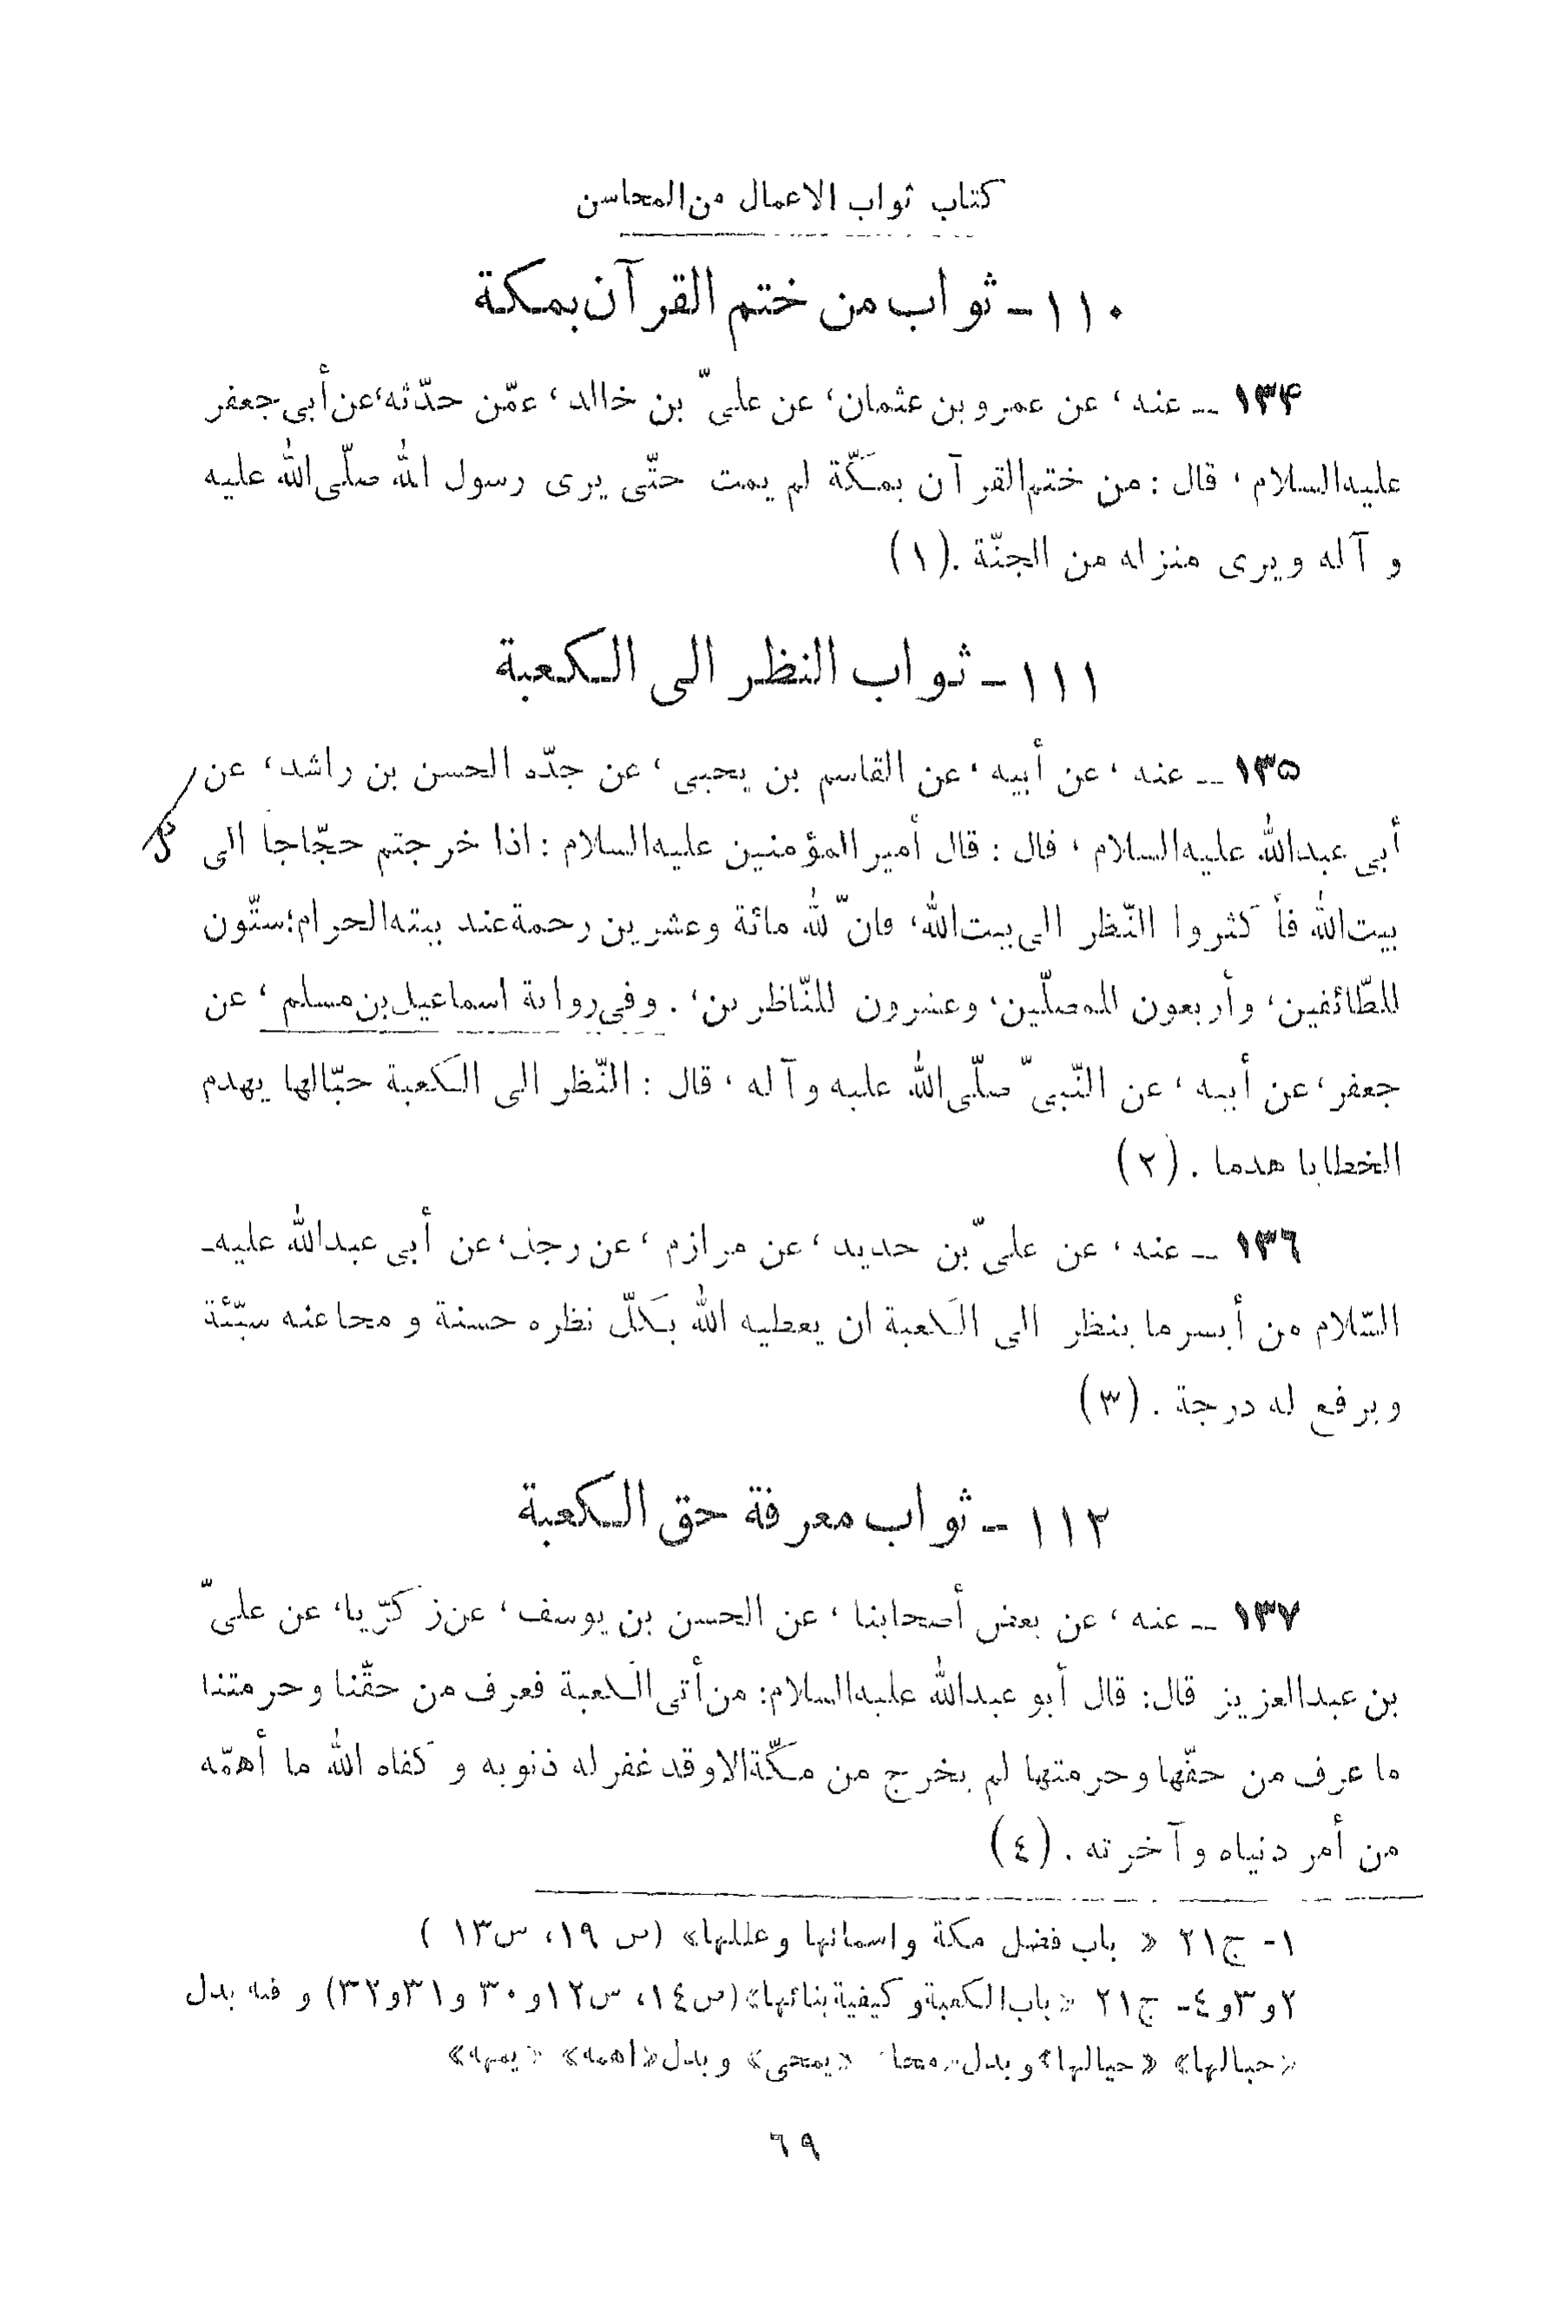 كتاب ثواب الاعمال من المحاسن
١١٠ - ثواب من ختم القرآن بمكة
١٣۴ ــ عنه ، عن عمرو بن عثمان، عن علىّ بن خالد ، عمّن حدّثه، عن أبى جعفر
عليه السلام ، قال : من ختم القرآن بمكّة لم يمت حتّى يرى رسول الله صلّى الله عليه
و آله و يرى منزله من الجنّة .(١)
١١١ - ثواب النظر الى الكعبة
١٣۵ ــ عنه ، عن أبيه ، عن القاسم بن يحيى ، عن جدّه الحسن بن راشد، عن
أبى عبدالله عليه السلام ، قال : قال أمير المؤمنين عليه السلام : اذا خرجتم حجّاجا الى
بيت الله فأكثروا النّظر الى بيت الله، فانّ لله مائة وعشرين رحمة عند بيته الحرام؛ ستّون
للطّائفين، وأربعون للمصلّين، وعشرون للنّاظرين، . وفى رواية اسماعيل بن مسلم ، عن
جعفر، عن أبيه ، عن النّبىّ صلّى الله عليه وآله ، قال : النّظر الى الكعبة حبّالها يهدم
الخطايا هدما . (٢)
١٣٦ ــ عنه ، عن علىّ بن حديد ، عن مرازم ، عن رجل، عن أبى عبدالله عليه‍ـ
السّلام من أيسر ما ينظر الى الكعبة ان يعطيه الله بكلّ نظره حسنة و محا عنه سيّئة
و يرفع له درجة . (٣)
١١٢ - ثواب معرفة حق الكعبة
١٣٧ ــ عنه ، عن بعض أصحابنا ، عن الحسن بن يوسف ، عن زكريّا، عن علىّ
بن عبدالعزيز قال: قال أبو عبدالله عليه السلام: من أتى الكعبة فعرف من حقّنا وحرمتنا
ما عرف من حقّها وحرمتها لم يخرج من مكّة الا وقد غفر له ذنوبه و كفاه الله ما أهمّه
من أمر دنياه وآخرته . (٤)
١- ج٢١ « باب فضل مكة واسمائها وعللها» (ص ١٩، س١٣ )
٢و٣و٤- ج٢١ «باب الكعبة و كيفية بنائها»(ص١٤، س١٢و٣٠ و٣١و٣٢) و فيه بدل
«حبالها» «حيالها» و بدل «محا» «يمحى» و بدل «اهمه» «يهمه»
٦٩